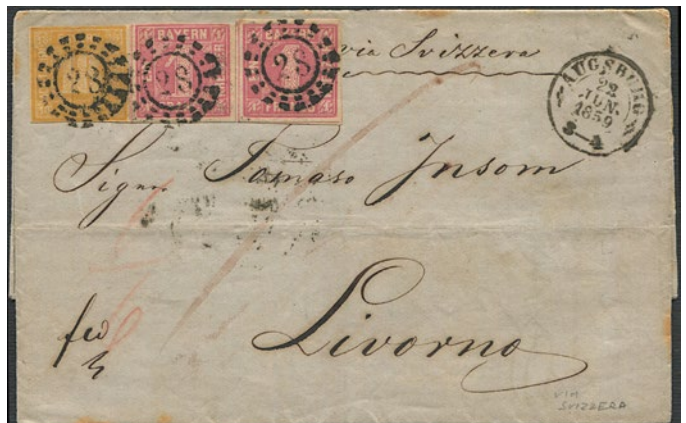 28 28 28
BAYERN
1
via Svizzera
AUGSBURG
22
JUN.
1859
3-4
Sigr. Tomaso Insom
Livorno
VIA
SVIZZERA